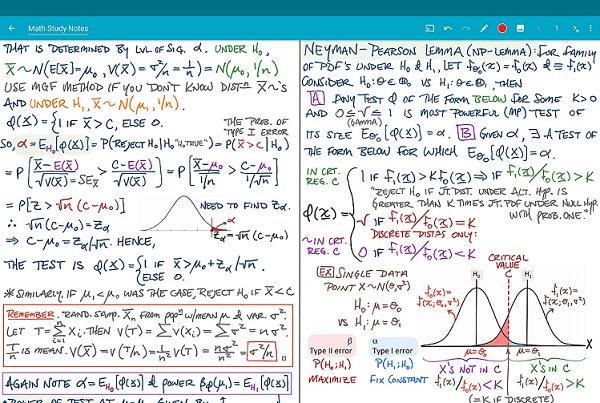 Math Study Notes
THAT IS DETERMINED BY LVL OF SIG. α. UNDER H₀,
X̄ ~ N(E[X̄]=μ₀, V(X̄)=σ²/n=1/n) = N(μ₀, 1/n)
USE MGF METHOD IF YOU DON'T KNOW DIST OF X̄~'S
AND UNDER H₁, X̄ ~ N(μ₁, 1/n).
φ(X) = {1 IF X̄ > C, ELSE 0.
THE PROB. OF TYPE I ERROR
SO, α = E_H₀[φ(X)] = P(REJECT H₀ | H₀ "TRUE") = P(X̄ > C | H₀)
= P[(X̄-E(X̄))/√V(X̄) = SE_X̄ > (C-E(X̄))/√V(X̄)] = P[(X̄-μ₀)/(1/√n) > (C-μ₀)/(1/√n)]
= P[Z > √n (C-μ₀)]
NEED TO FIND Zα.
∴ √n (C-μ₀) = Zα
α
⇒ C-μ₀ = Zα/√n. HENCE,
Zα = √n (C-μ₀)
THE TEST IS φ(X) = {1 IF X̄ > μ₀ + Zα/√n.
ELSE 0
* SIMILARLY, IF μ₁ < μ₀ WAS THE CASE, REJECT H₀ IF X̄ < C
REMEMBER. RAND. SAMP. X̄ₙ FROM POPⁿ W/MEAN μ & VAR. σ².
LET T = Σ Xᵢ. THEN V(T) = Σ V(xᵢ) = Σ σ² = nσ².
T/n IS MEAN. V(X̄) = V(T/n) = 1/n² V(T) = nσ²/n² = σ²/n
AGAIN NOTE α = E_H₀[φ(X)] & POWER βφ(μ₁) = E_H₁[φ(X)]
NEYMAN-PEARSON LEMMA (NP-LEMMA): FOR FAMILY
OF PDF'S UNDER H₀ & H₁, LET f_θ₀(x) = f₀(x) & = f₁(x)
CONSIDER H₀: θ∈Θ₀ VS H₁: θ∈Θ₁, THEN
A ANY TEST φ OF THE FORM BELOW FOR SOME K>0
AND 0 ≤ γ ≤ 1 IS MOST POWERFUL (MP) TEST OF
(GAMMA)
ITS SIZE E_θ₀[φ(X)] = α. B GIVEN α, ∃ A TEST OF
THE FORM BELOW FOR WHICH E_θ₀[φ(X)] = α.
IN CRT. REG. C
1 IF f₁(x) > K f₀(x) ⇒ IF f₁(x)/f₀(x) > K
"REJECT H₀ IF JT. DIST. UNDER ALT. HYP. IS
GREATER THAN K TIMES JT. PDF UNDER NULL HYP.
WITH PROB. ONE."
φ(X) =
γ IF f₁(x)/f₀(x) = K
DISCRETE DISTNS ONLY:
~IN CRT. REG. C
0 IF f₁(x)/f₀(x) < K
EX SINGLE DATA
POINT X ~ N(θ, σ²)
H₀: μ = θ₀
VS H₁: μ = θ₁
CRITICAL VALUE
C
H₀
H₁
f₀(x) = f(x; θ₀, σ²)
f₁(x) = f(x; θ₁, σ²)
β
Type II error
P(H₀;H₁)
MAXIMIZE
α
Type I error
P(H₁;H₀)
FIX CONSTANT
μ=θ₀
μ=θ₁
X
X'S NOT IN C
X'S IN C
f₁(x)/f₀(x) < K
f₁(x)/f₀(x) > K
(= K IF DISCRETE)